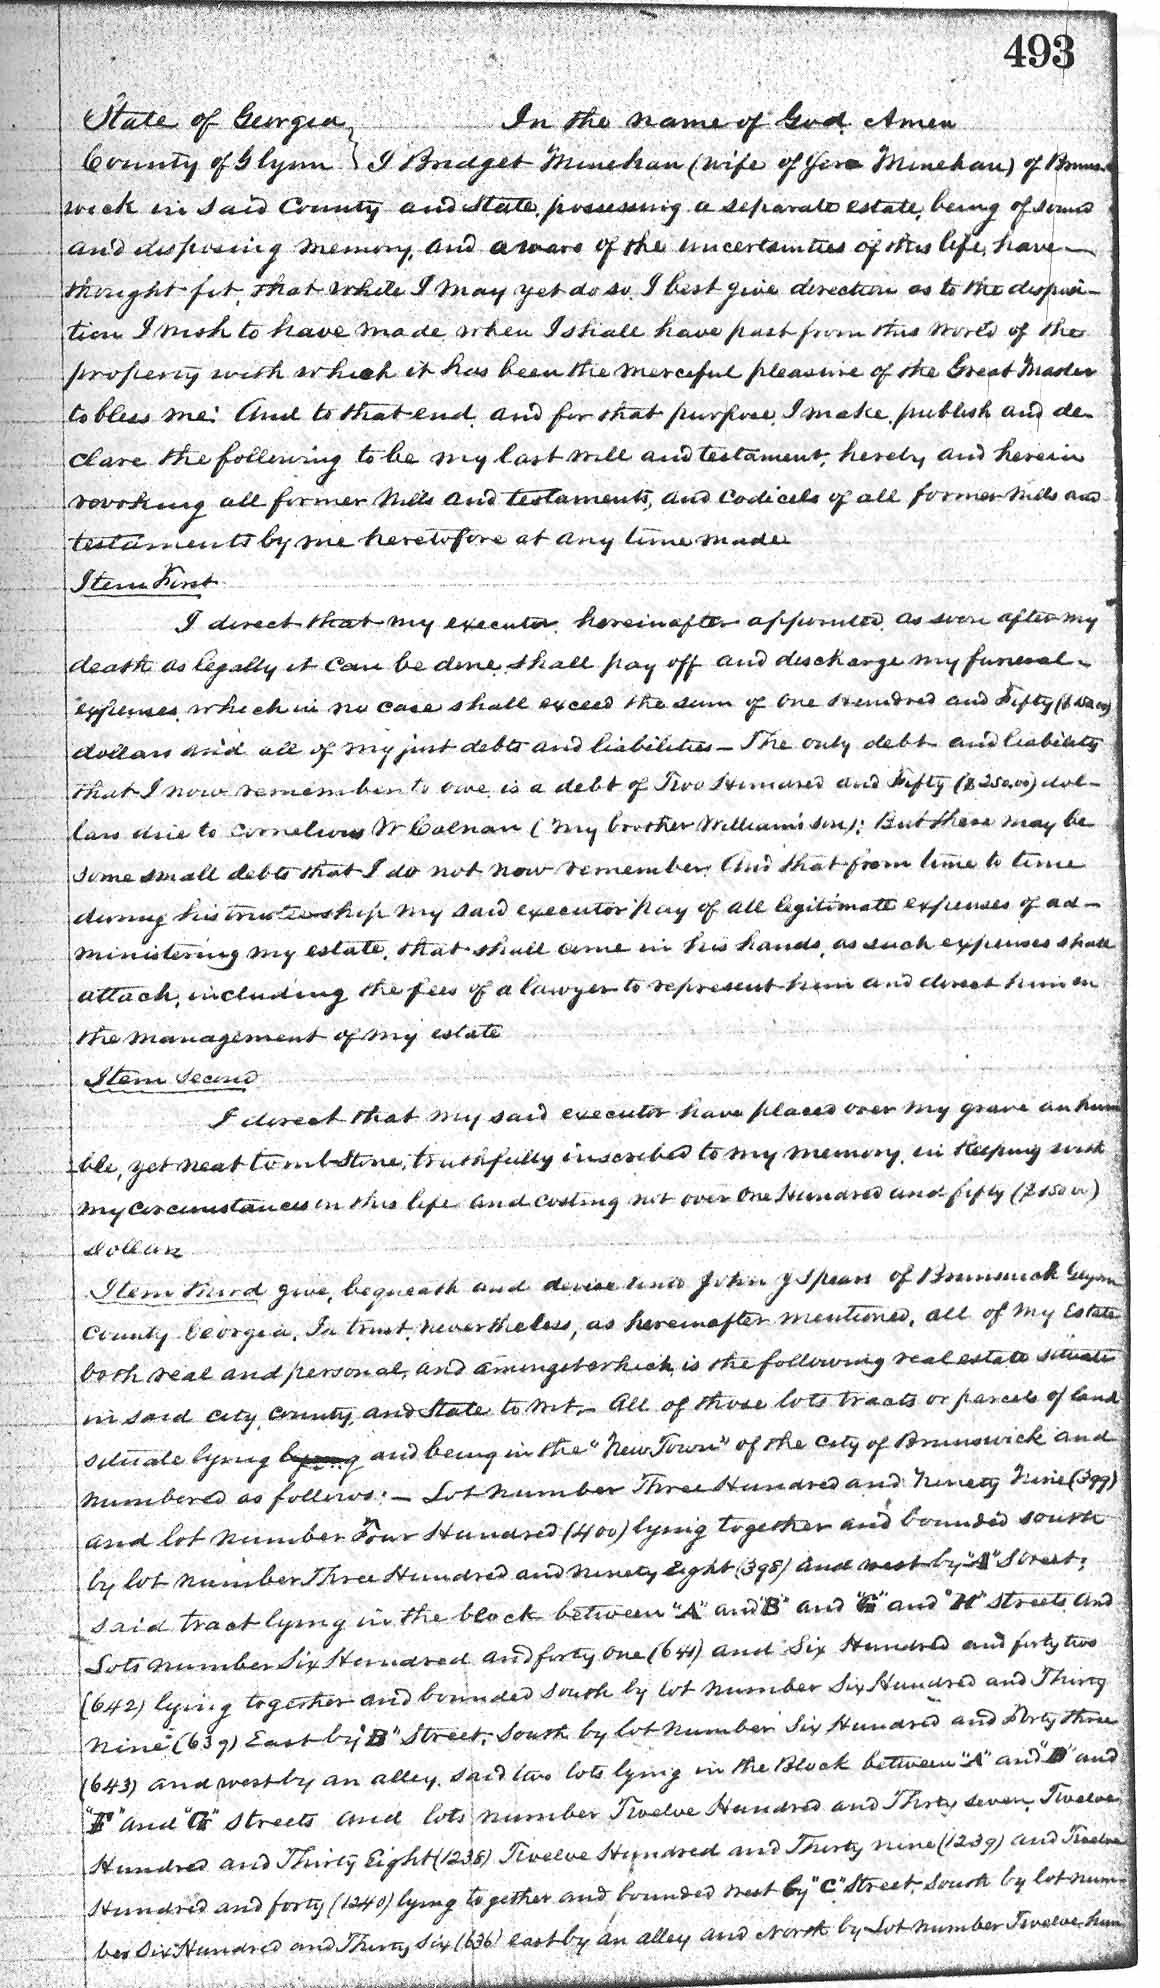 493
State of Georgia } In the name of God Amen
County of Glynn } I Bridget Minehan (wife of Jere Minehan) of Bruns-
wick in said County and State, possessing a separate estate, being of sound
and disposing memory, and aware of the uncertainties of this life, have
thought fit, that while I may yet do so, I best give direction as to the disposi-
tion I wish to have made when I shall have past from this world of the
property with which it has been the merciful pleasure of the Great Master
to bless me: And to that end, and for that purpose, I make, publish and de-
clare the following to be my last will and testament, hereby and herein
revoking all former wills and testaments, and codicils of all former wills and
testaments by me heretofore at any time made
Item First
I direct that my executor, hereinafter appointed, as soon after my
death as legally it can be done, shall pay off and discharge my funeral
expenses, which in no case shall exceed the sum of One Hundred and Fifty ($150.00)
dollars and all of my just debts and liabilities – The only debt and liability
that I now remember to owe, is a debt of Two Hundred and Fifty ($250.00) dol-
lars due to Cornelious W Colnan (my brother William's son); But there may be
some small debts that I do not now remember. And that from time to time
during his trusteeship my said executor pay of all legitimate expenses of ad-
ministering my estate, that shall come in his hands, as such expenses shall
attach, including the fees of a lawyer to represent him and direct him in
the management of my estate
Item Second
I direct that my said executor have placed over my grave an hum
ble, yet neat tomb-stone, truthfully inscribed to my memory, in keeping with
my circumstances in this life and costing not over One Hundred and fifty ($150.00)
dollars
Item Third give, bequeath and devise unto John J Spears of Brunswick Glynn
County Georgia, In trust, nevertheless, as hereinafter mentioned, all of my Estate
both real and personal, and amongst which is the following real estate situate
in said city, county and State to wit,– All of those lots tracts or parcels of land
situate lying and being in the "New Town" of the City of Brunswick and
numbered as follows:– Lot number Three Hundred and Ninety Nine (399)
and lot number Four Hundred (400) lying together and bounded south
by lot number Three Hundred and ninety Eight (398) and west by "A" Street;
said tract lying in the block between "A" and "B" and "G" and "H" streets And
Lots number Six Hundred and forty one (641) and Six Hundred and forty two
(642) lying together and bounded south by lot number Six Hundred and Thirty
nine (639) East by "B" Street, South by lot number Six Hundred and Forty three
(643) and west by an alley. Said two lots lying in the Block between "A" and "B" and
"F" and "G" streets and lots number Twelve Hundred and Thirty seven, Twelve
Hundred and Thirty Eight (1238) Twelve Hundred and Thirty nine (1239) and Twelve
Hundred and forty (1240) lying together and bounded west by "C" Street, South by lot num-
ber Six Hundred and Thirty Six (636) east by an alley and North by Lot number Twelve hun